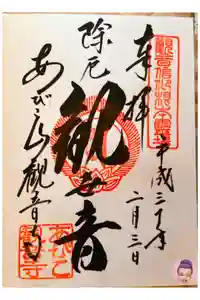 奉拝
平成三十年
二月三日
除厄
観世音
あびこ観音寺
あびこ
観音寺